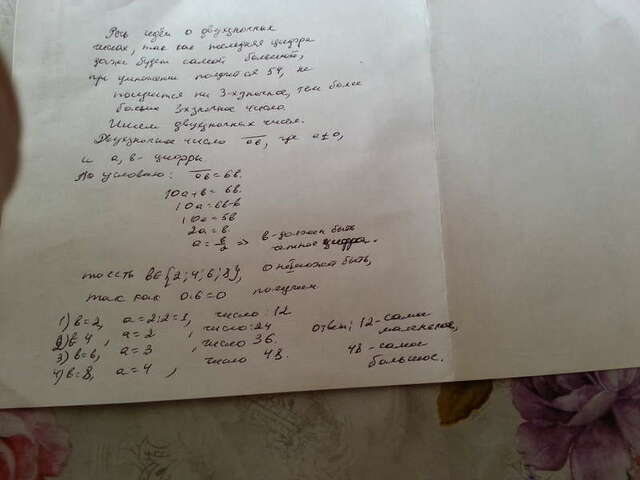 Речь идёт о двухзначных
числах, так как последняя цифра
даже будет самой большой,
при умножении получится 54, не
получится ни 3-хзначное, тем более
больше 3хзначное число.
Ищем двухзначных числа.
Двухзначное число ав, где а≠0,
и а, в - цифры
По условию: ав = 6в.
10а+в = 6в.
10а=6в-в
10а=5в
2а=в
а=в/2 => в-должен быть
чётное цифра.
то есть в∈{2;4;6;8}, 0 не может быть,
так как 0·6=0 получаем
1) в=2, а=2:2=1, число: 12
2) в=4, а=2, число: 24
3) в=6, а=3, число 36.
4) в=8, а=4, число 48.
ответ: 12-самое
маленькое,
48-самое
большое.